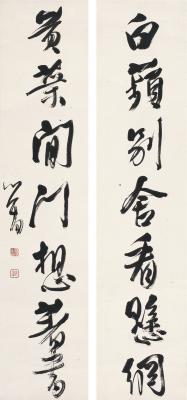 白蘋別舍看懸網
黃葉閒門想著書
心畬